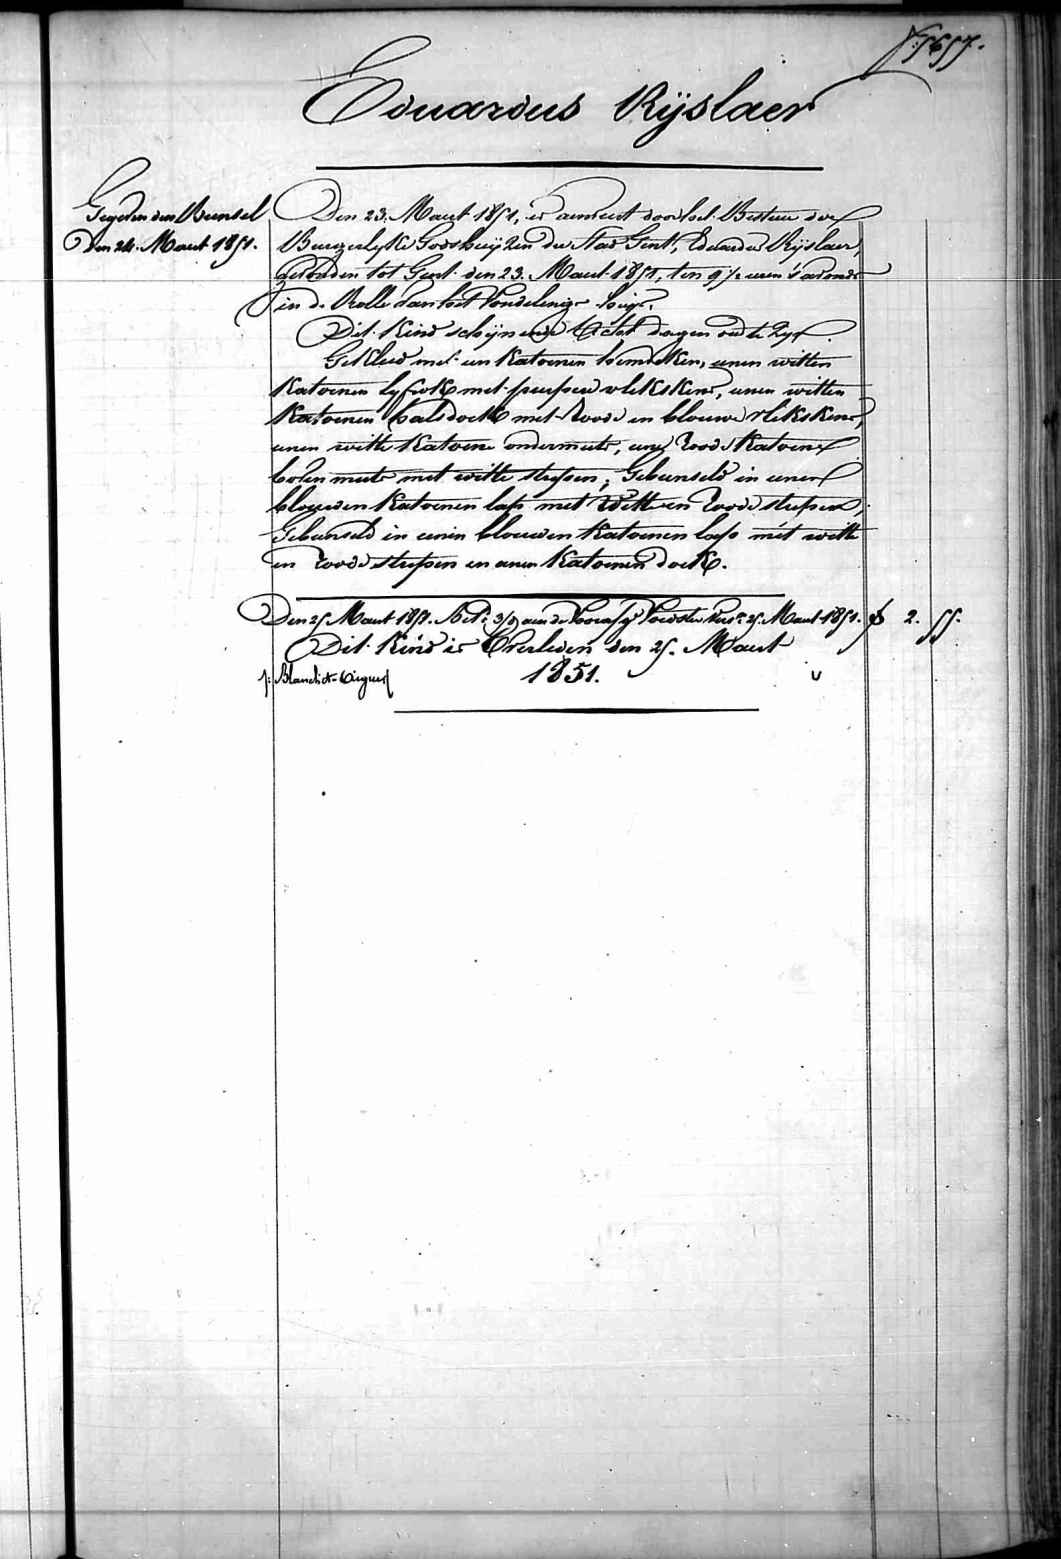 f: 5657.
Eduardus Rijslaer
Gegeven den Bunsel
Den 24. Maert 1851.
Den 23. Maert 1851, is aenveert door het Bestuer der
Burgerlyke Godshuijzen der Stad Gent, Eduardus Rijslaer,
gevonden tot Gent den 23. Maert 1851, ten 9 ½ uren s'avonds
in de Rolle van het Vondelingen huijs.
Dit Kind schijnende Acht dagen oud te zijn.
Gekleed met een Katoenen hemdeken, eenen witten
Katoenen lyfrok met peersche vlekskens, eenen witten
Katoenen halsdoek met roode en blouwe vlekskens,
eenen witte Katoene ondermuts, eene roode Katoene
boven muts met witte streepen, Gebunseld in eenen
blouwen Katoenen lap met witte en roode streepen,
Gebunseld in eenen blouwen Katoenen lap met witte
en roode streepen en eenen Katoenen doek.
Den 25 Maert 1851. Bet. 3/8 aen de Voedster 25 Maert 1851. f 2. 55.
Dit Kind is Overleden den 25. Maert
1851.